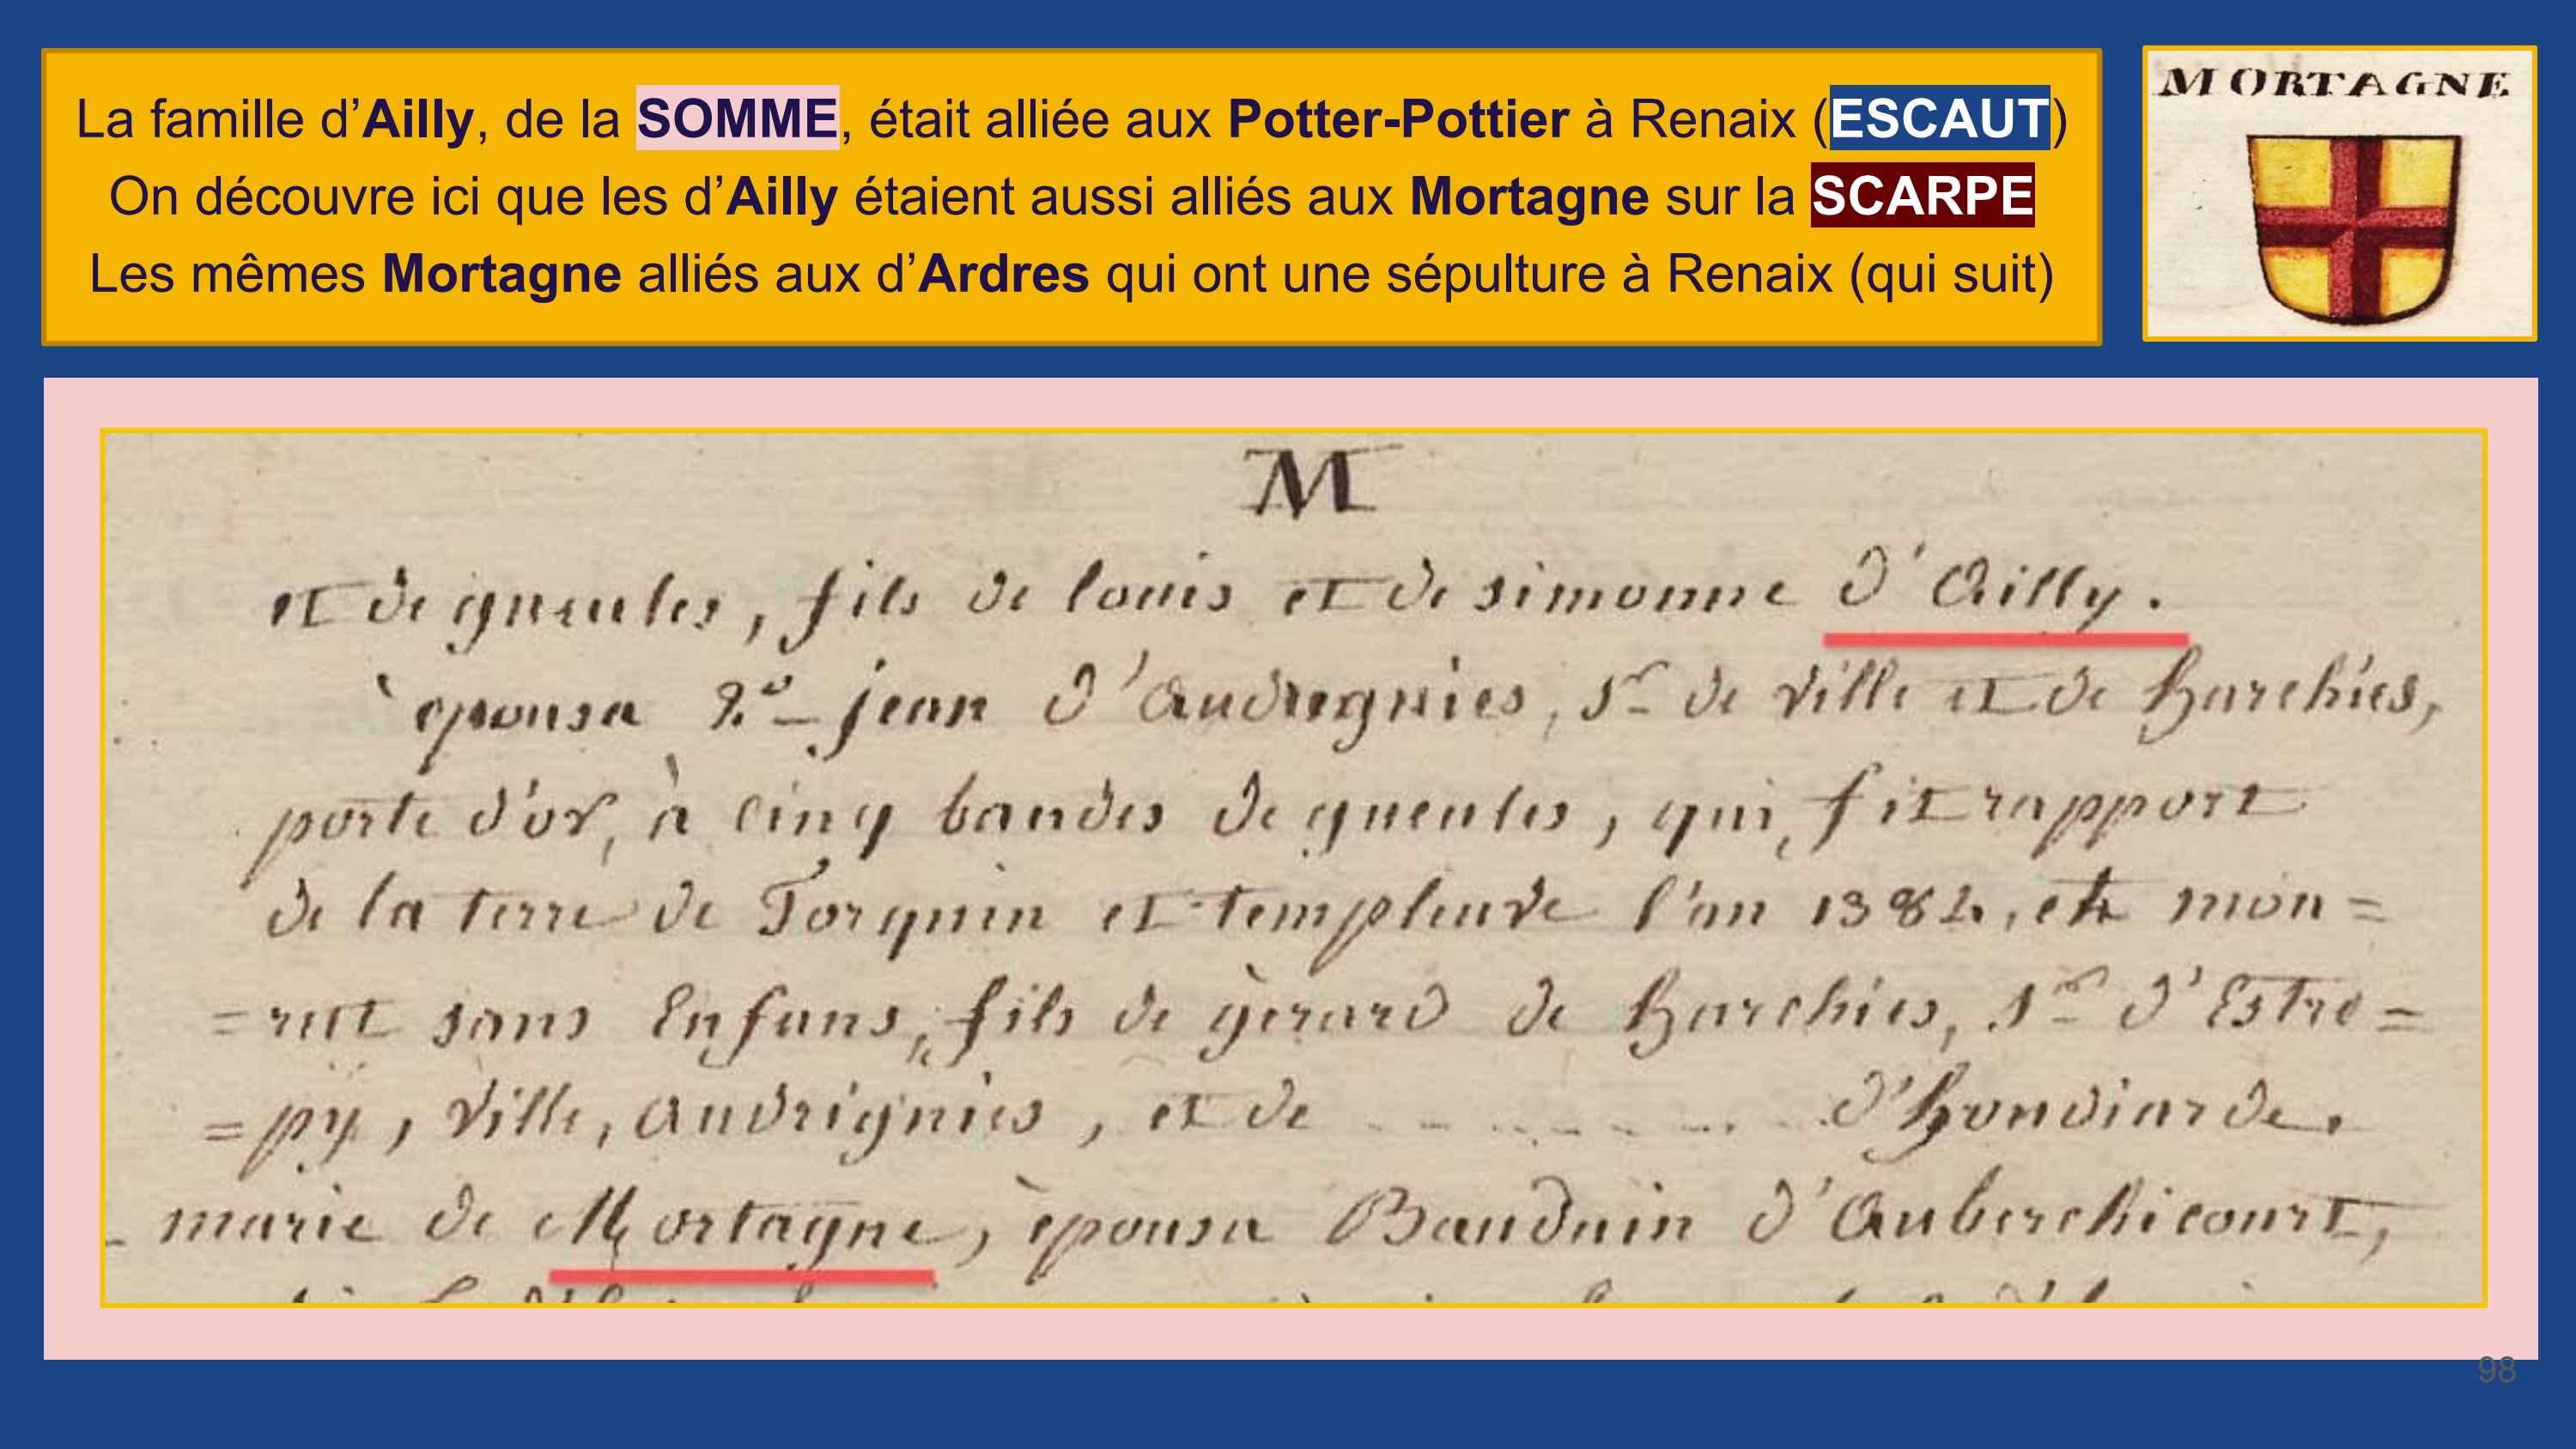 La famille d’Ailly, de la SOMME, était alliée aux Potter-Pottier à Renaix (ESCAUT)
On découvre ici que les d’Ailly étaient aussi alliés aux Mortagne sur la SCARPE
Les mêmes Mortagne alliés aux d’Ardres qui ont une sépulture à Renaix (qui suit)
MORTAGNE
M
et de gueules, fils de louis et de simonne d'Ailly.
èpousa 2.º jean d'Audregnies, Sr de Ville et de Harchies,
porte d'or, à cinq bandes de gueules, qui fit rapport
de la terre de Forquin et templeuve l'an 1382, et mou=
=rut sans Enfans, fils de gèrard de Harchies, Sr d'Estre=
=py, Ville, Audrignies, et de . . . . . . . . d'Hondiarde.
- marie de Mortagne, èpousa Bauduin d'Auberchicourt,
98